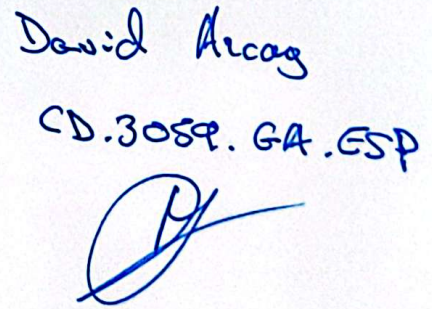 David Arcay
CD.3059.GA.ESP